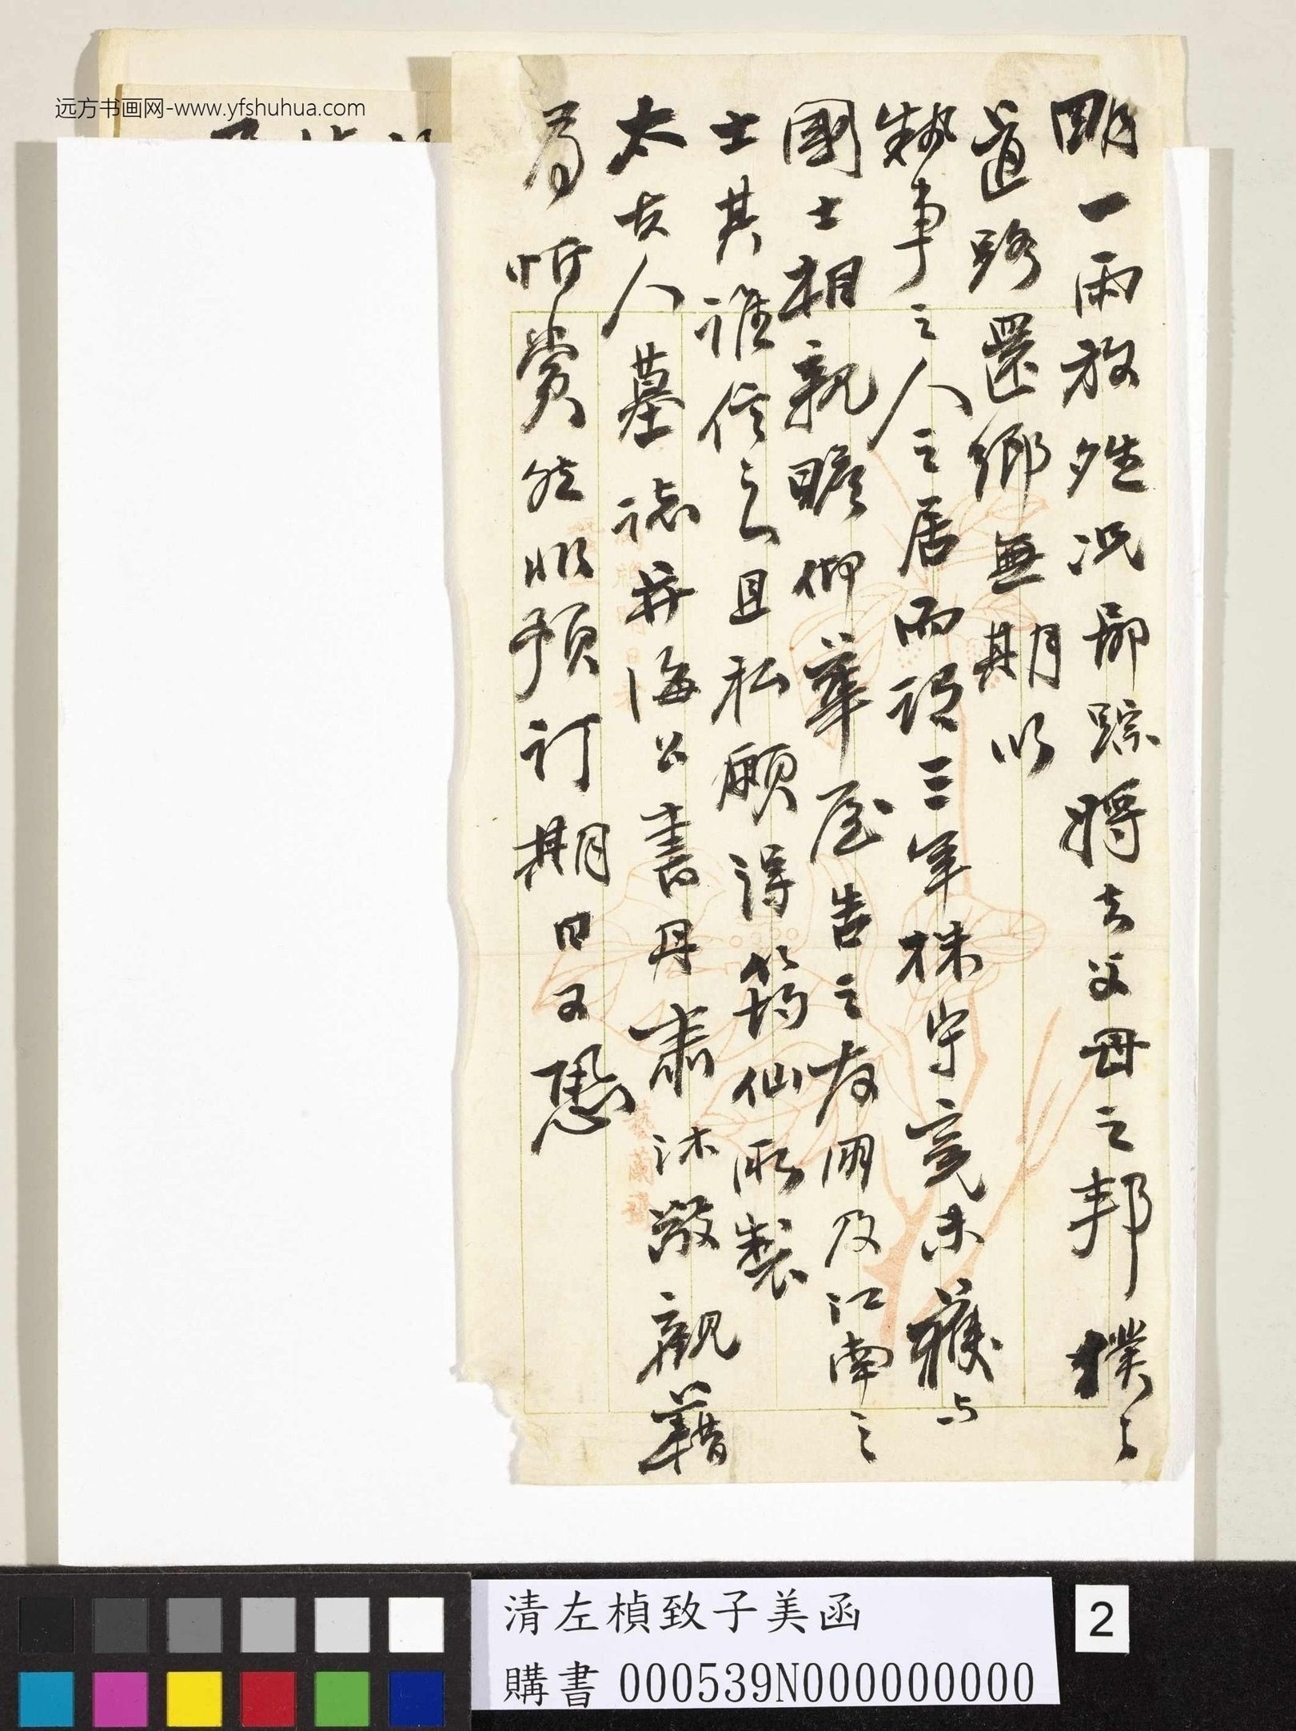 远方书画网-www.yfshuhua.com
明一兩放姓况鄙踪將去父母之邦撲
道路還鄉無期以
執事之人之居而設三年株守竟未獲与
國士相親瞻仰華屋告之友朋及江南之
士其誰信之且私願得筠仙所製
太夫人墓誌并海公書丹肅沐敬觀藉
為忻賞然拟預訂期日又恐
清左楨致子美函
購書 000539N000000000
2